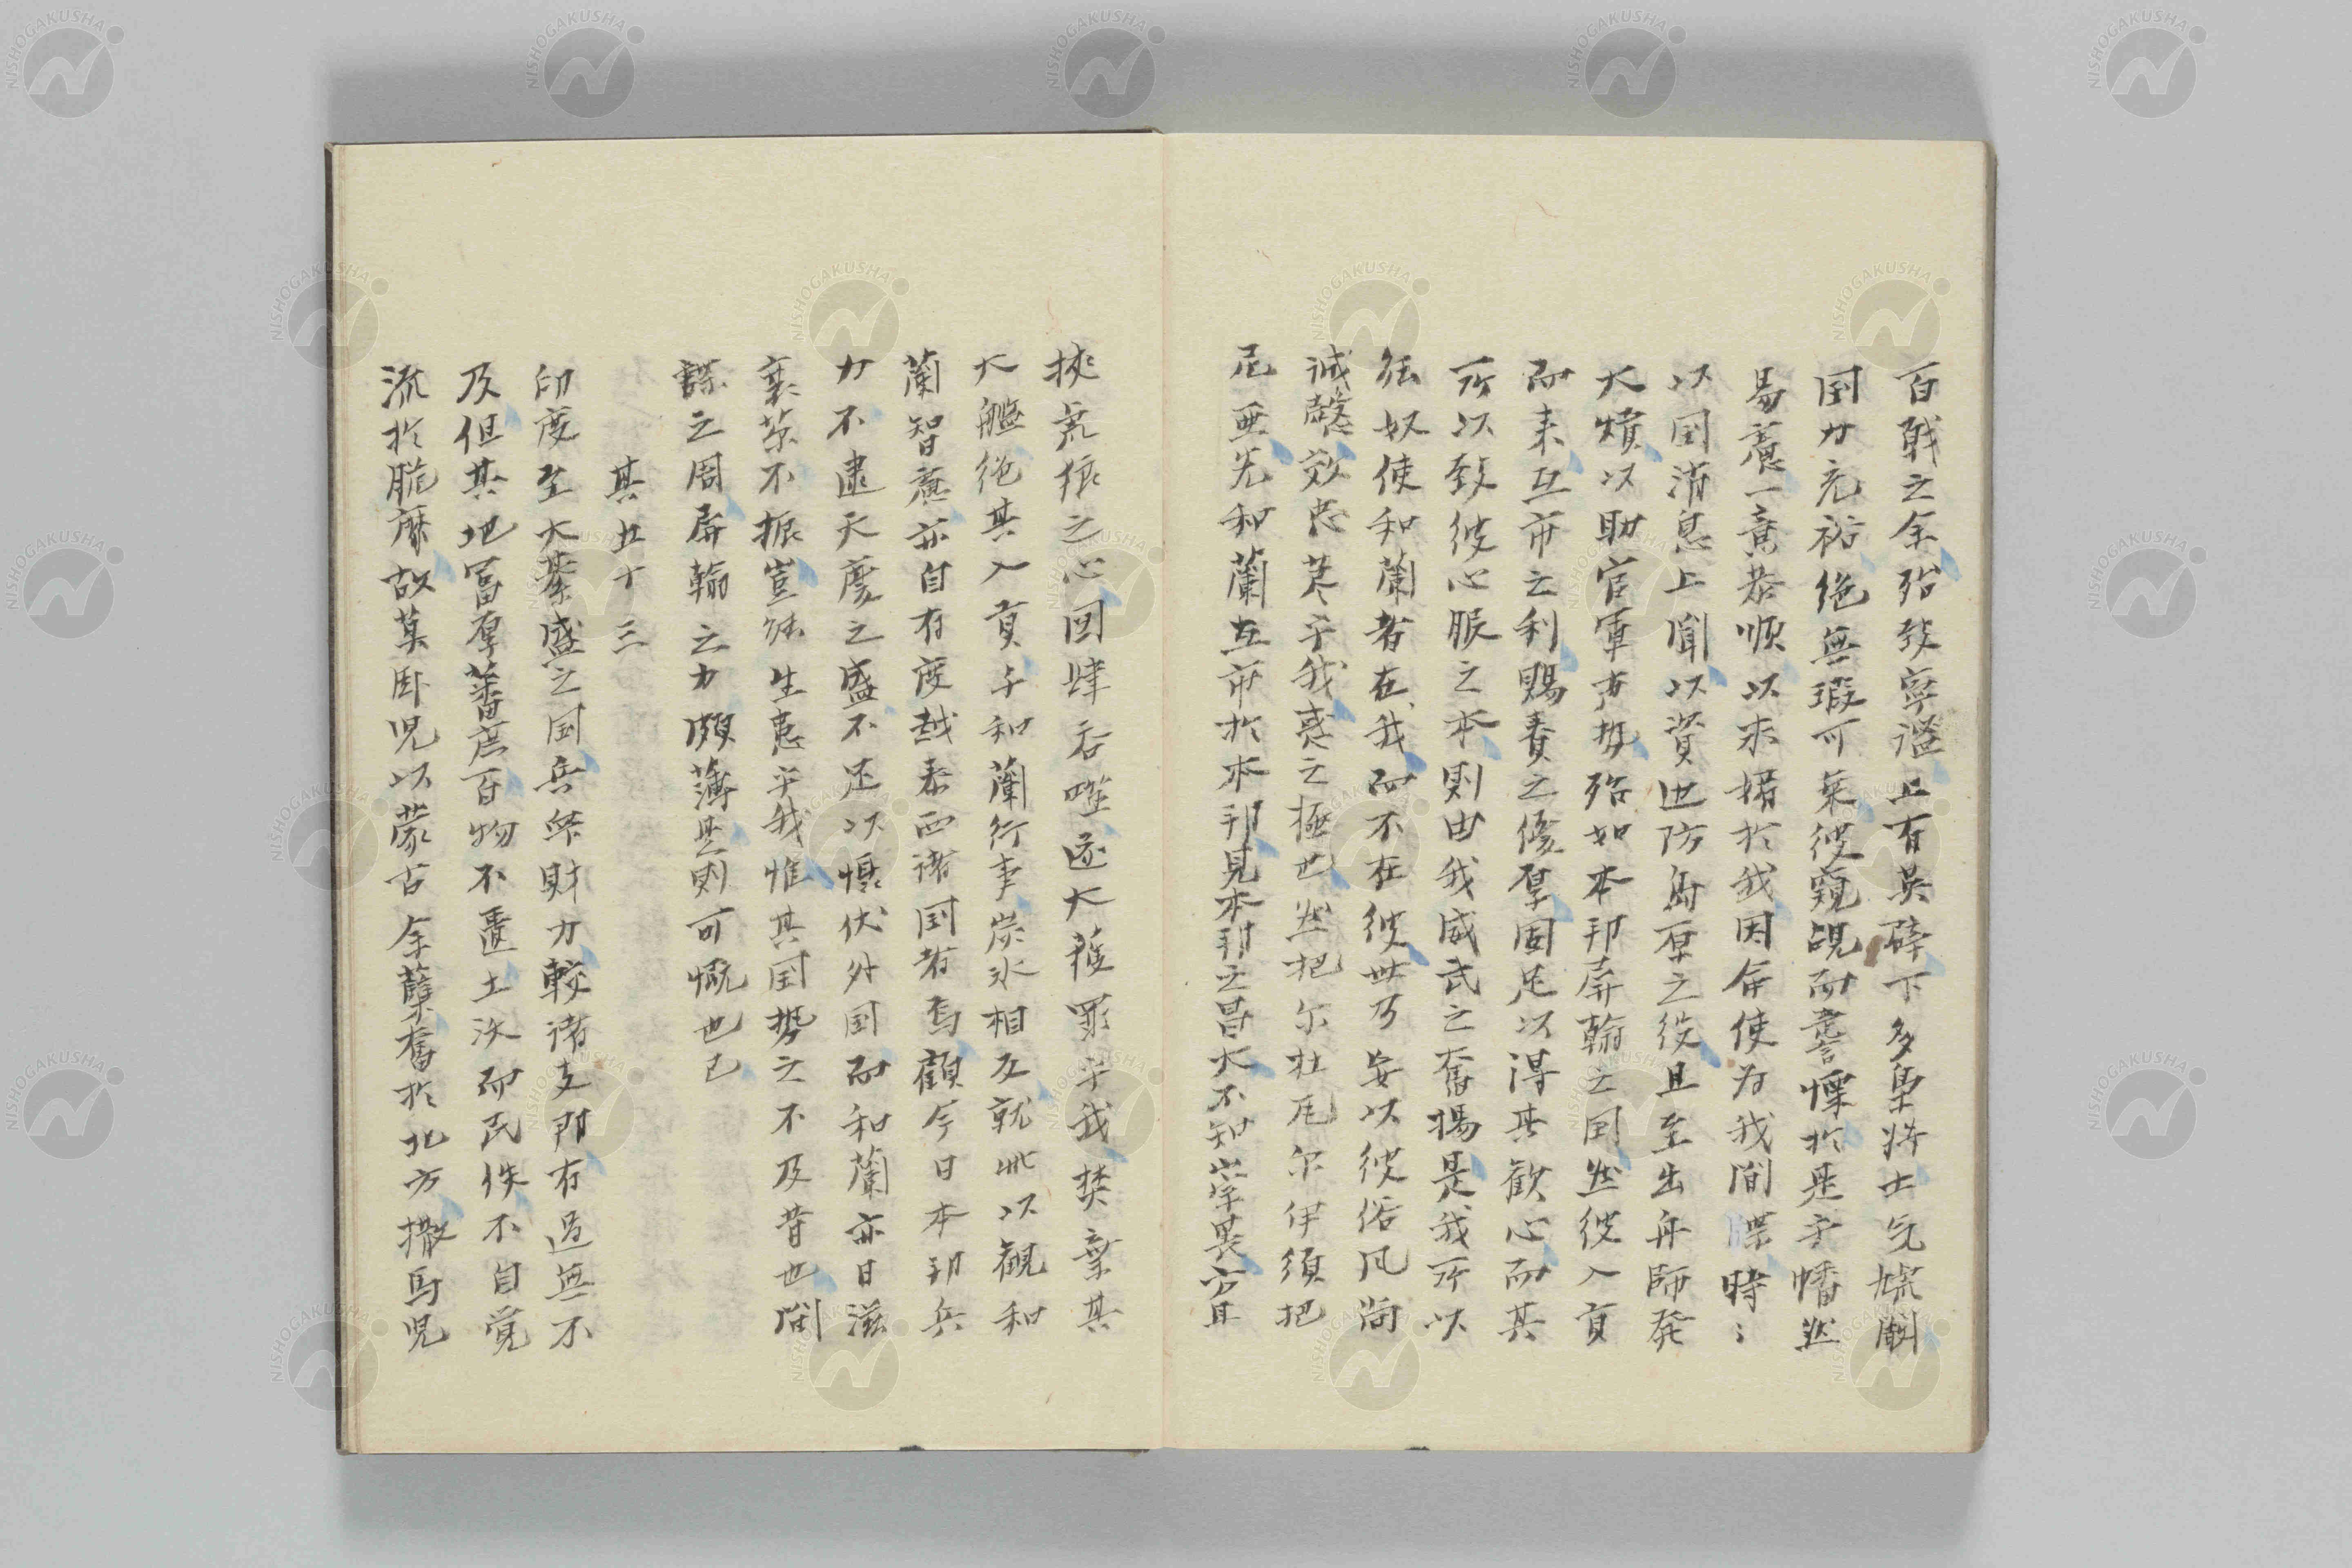 百戦之余殆致寧謐上有英辟下多梟将士気
国力充裕絶無瑕可乗彼窺覘而讋慄於是乎幡然
易慮一意恭順以求媚於我因令使為我間諜時〻
以国消息上聞以資辺防島原之役且至出舟師発
大熕以助官軍声勢殆如本邦屏翰之国然彼入貢
而来互市之利賜賚之優厚固足以得其歓心而其
所以致彼心服之本則由我威武之奮揚是我所以
能奴使和蘭者在我而不在彼世乃妄以彼俗凡尚
誠愨效忠藎乎我惑之極也然把尓杜瓦尔伊須把
尼亜先和蘭互市於本邦見本邦之昌大不知寅畏
挟虎狼之心回肆呑噬遂大獲罪乎我焚棄其
大艦絶其入貢与和蘭行事炭氷相反就此以観和
蘭智慮亦自有度越泰西諸国者焉顧今日本邦兵
力不逮天慶之盛不足以懾伏外国而和蘭亦日滋
衰苶不振豈能生患乎我惟其国勢之不及昔也間
諜之周屏翰之力頗薄是則可慨也已
其五十三
印度至大綦盛之国兵衆財力較諸支那有過無不
及但其地富厚蕃庶百物不匱土沃而民佚不自覚
流於脆靡故莫臥児以蒙古余孽奮於北方撒馬児
NISHOGAKUSHA